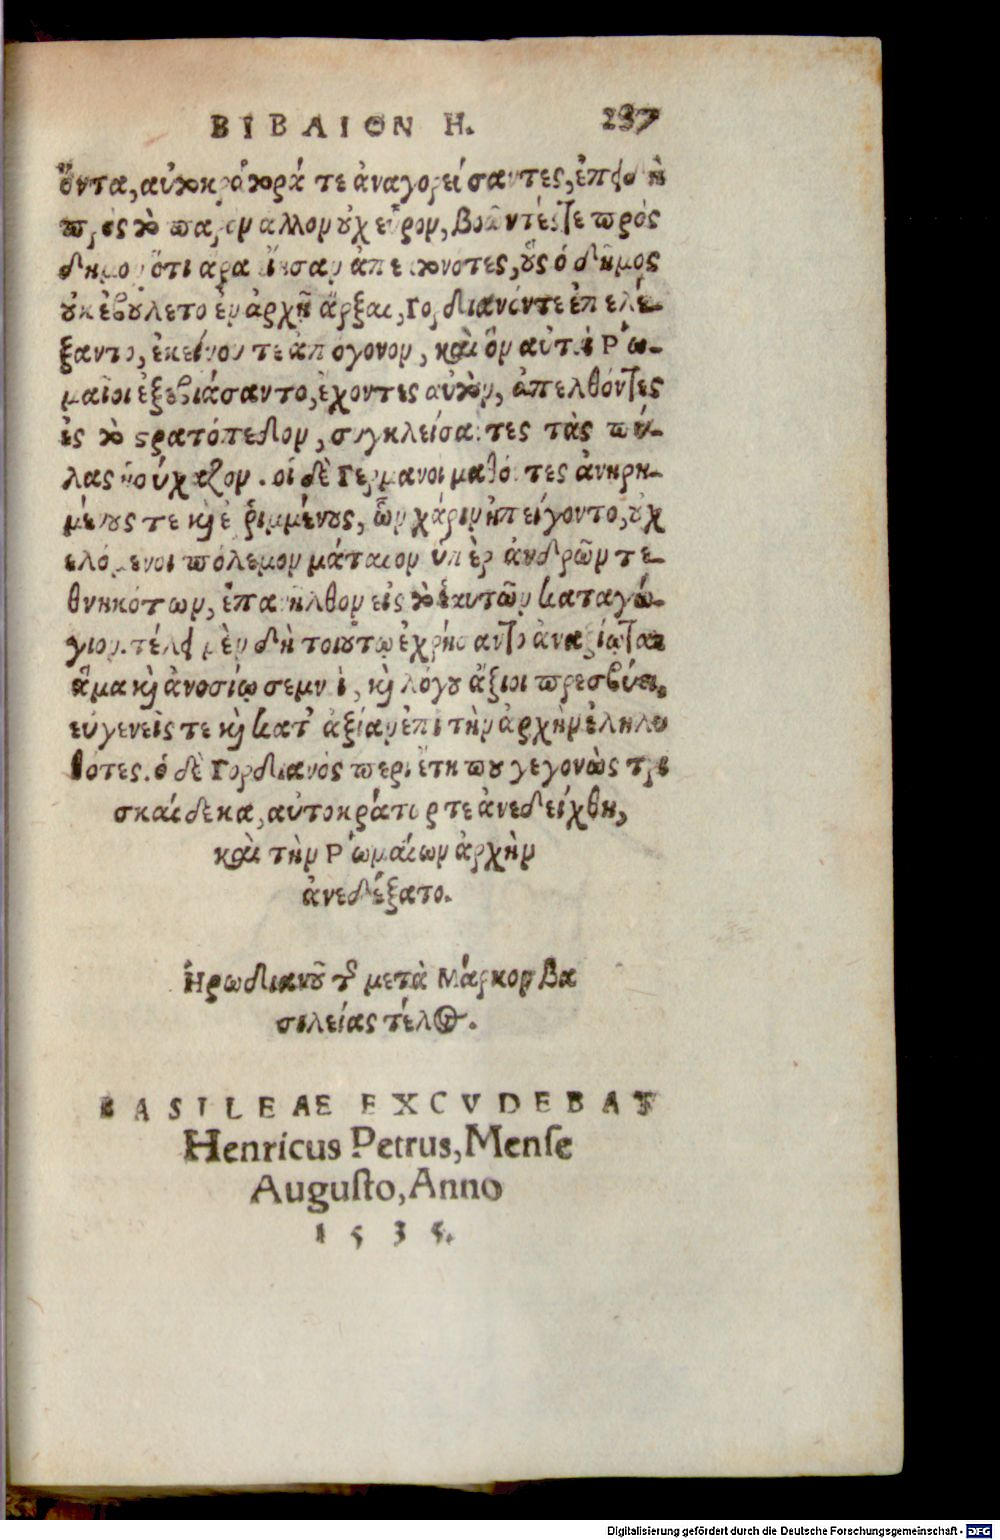 ΒΙΒΛΙΟΝ Η. 237
ὄντα, αὐτοκράτορά τε ἀναγορεύσαντες, ἐπειδὴ
πρὸς τὸ παρὸν ἄλλον οὐχ εὗρον, βοῶντές τε πρὸς
δῆμον ὅτι ἄρα εἴησαν ἀπεκτονότες, οὓς ὁ δῆμος
οὐκ ἐβούλετο ἐν ἀρχῇ ἄρξαι, Γορδιανόν τε ἐπελέ-
ξαντο, ἐκείνου τε ἀπόγονον, καὶ ὃν αὐτοὶ Ῥω-
μαῖοι ἐξεβιάσαντο, ἔχοντες αὐτὸν, ἀπελθόντες
ἐς τὸ στρατόπεδον, συγκλείσαντες τὰς πύ-
λας ἡσύχαζον. οἱ δὲ Γερμανοὶ μαθόντες ἀνῃρη-
μένους τε καὶ ἐῤῥιμμένους, ὧν χάριν ἠπείγοντο, οὐχ
ἑλόμενοι πόλεμον μάταιον ὑπὲρ ἀνδρῶν τε-
θνηκότων, ἐπανῆλθον εἰς τὸ ἑαυτῶν καταγώ-
γιον. τέλει μὲν δὴ τοιούτῳ ἐχρήσαντο ἀναξίῳ τε
ἅμα καὶ ἀνοσίῳ σεμνοὶ, καὶ λόγου ἄξιοι πρεσβύται,
εὐγενεῖς τε καὶ κατ' ἀξίαν ἐπὶ τὴν ἀρχὴν ἐληλυ
θότες. ὁ δὲ Γορδιανὸς περὶ ἔτη που γεγονὼς τρις
καίδεκα, αὐτοκράτωρ τε ἀνεδείχθη,
καὶ τὴν Ῥωμαίων ἀρχὴν
ἀνεδέξατο.
Ἡρωδιανοῦ τῆς μετὰ Μάρκον βα
σιλείας τέλος.
BASILEAE EXCVDEBAT
Henricus Petrus, Mense
Augusto, Anno
1535.
Digitalisierung gefördert durch die Deutsche Forschungsgemeinschaft - DFG